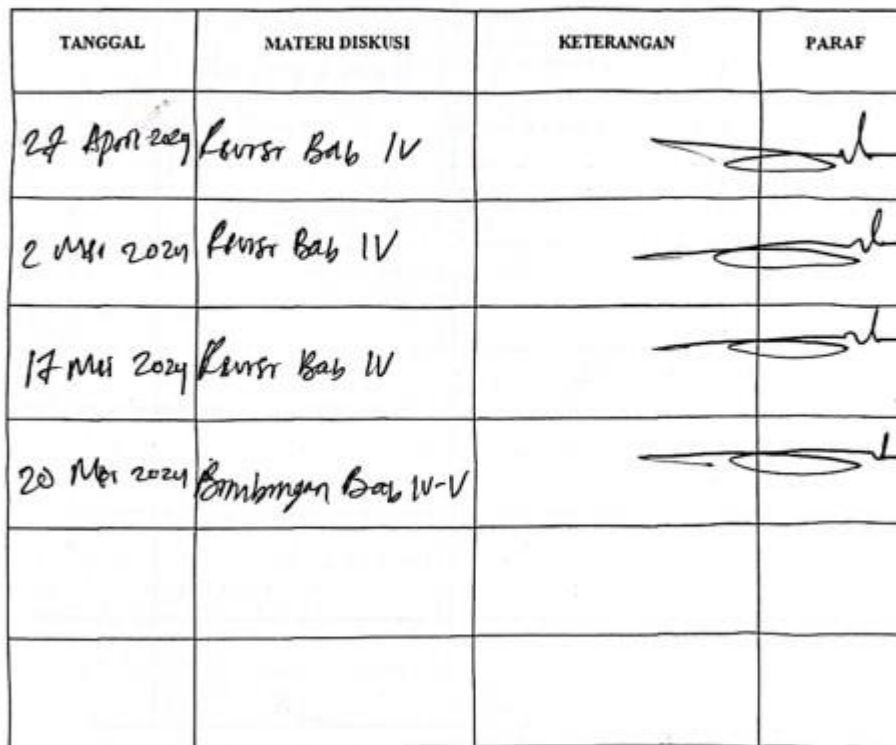 TANGGAL MATERI DISKUSI KETERANGAN PARAF
27 April 2024 Revisi Bab IV
2 Mei 2024 Revisi Bab IV
17 Mei 2024 Revisi Bab IV
20 Mei 2024 Bimbingan Bab IV-V